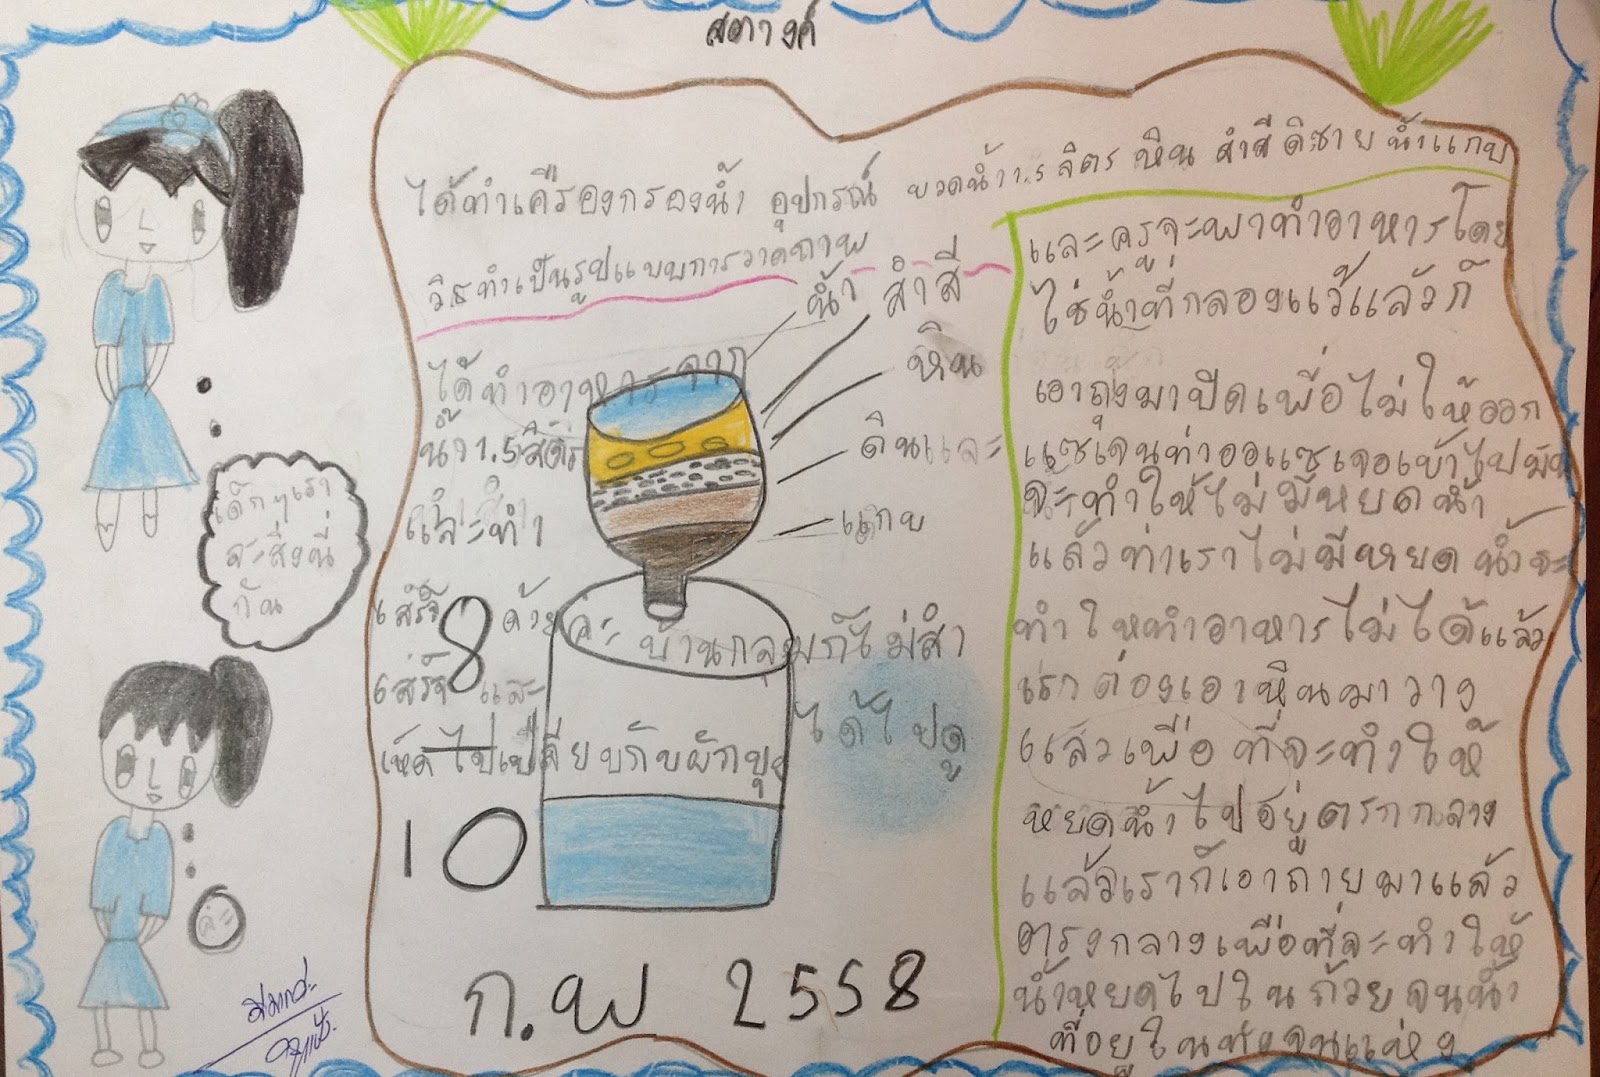 สตางค์
ได้ทำเครื่องกรองน้ำ อุปกรณ์ ขวดน้ำ1.5 ลิตร หิน สำสี ดิ ทราย น้ำแกบ
วิธทำเป็นรูปแบบการวาดภาพ
น้ำ
สำสี
หิน
ดินและ
แกบ
ได้ทำอาหารจาก
น้ำ1.5ลิตร
และทำ
เสร็จ
8
ด้วยค่ะ บ้านกลุ่มก็ไม่สำ
เสร็จ และ
ได้ไปดู
เห็ด ไปเปลียบกับผักบุ้ง
10
ก.พ 2558
เด็กๆเรา
จะสิ่งนี่
กัน
ค่ะ
และครูจะพาทำอาหารโดย
ใช่น้ำที่กลองแว้แล้วก็
เอาถุงมาปิดเพื่อไม่ให้ออก
แซเจนท่าออแซเจอเข้าไปมัน
จะทำให้ไม่มีหยดน้ำ
แล้วท่าเราไม่มีหยดน้ำจะ
ทำใหทำอาหารไม่ได้แล้ว
เรกต่องเอาหินมาวาง
แล้วเพื่อที่จะทำให้
หยดน้ำไปอยู่ตรกกลาง
แล้วเราก็เอาถ่ายมาแล้ว
ตรงกลางเพื่อที่จะทำให้
น้ำหยดไปในถ้วยจนน้ำ
ที่อยู่ใน